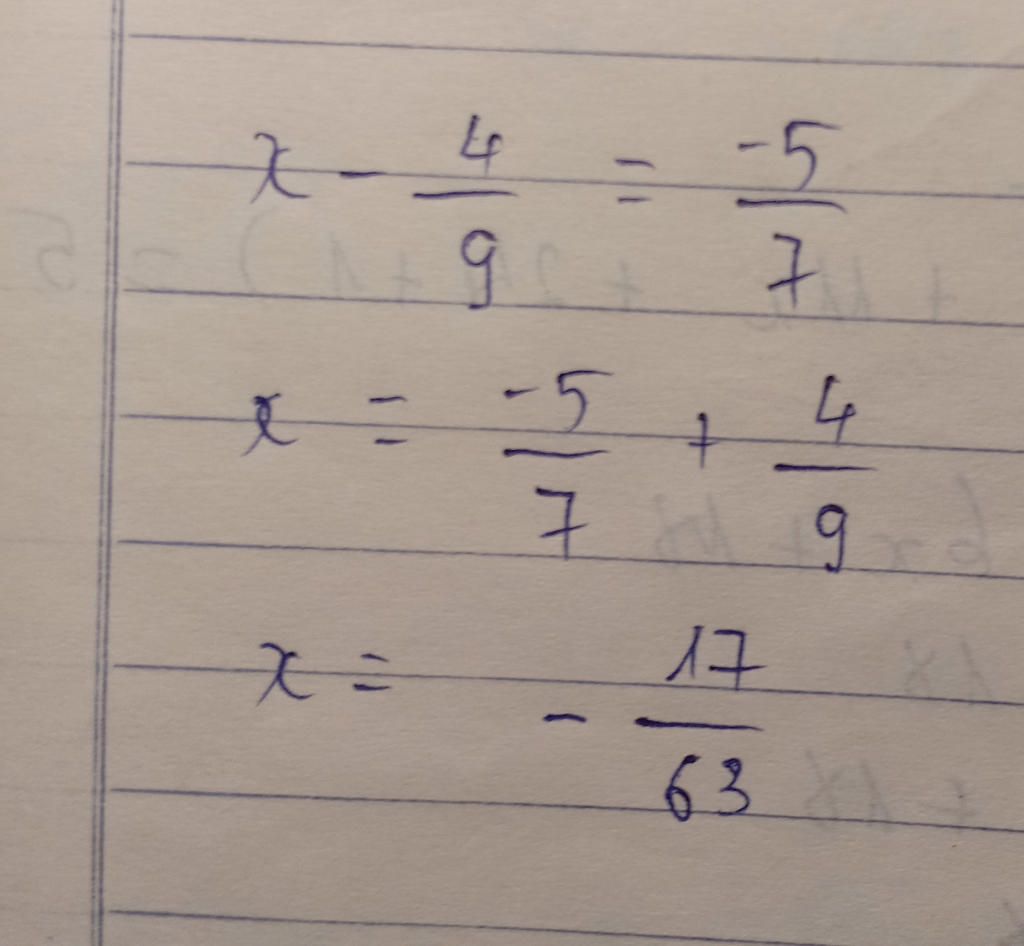 x - 4/9 = -5/7
x = -5/7 + 4/9
x = - 17/63